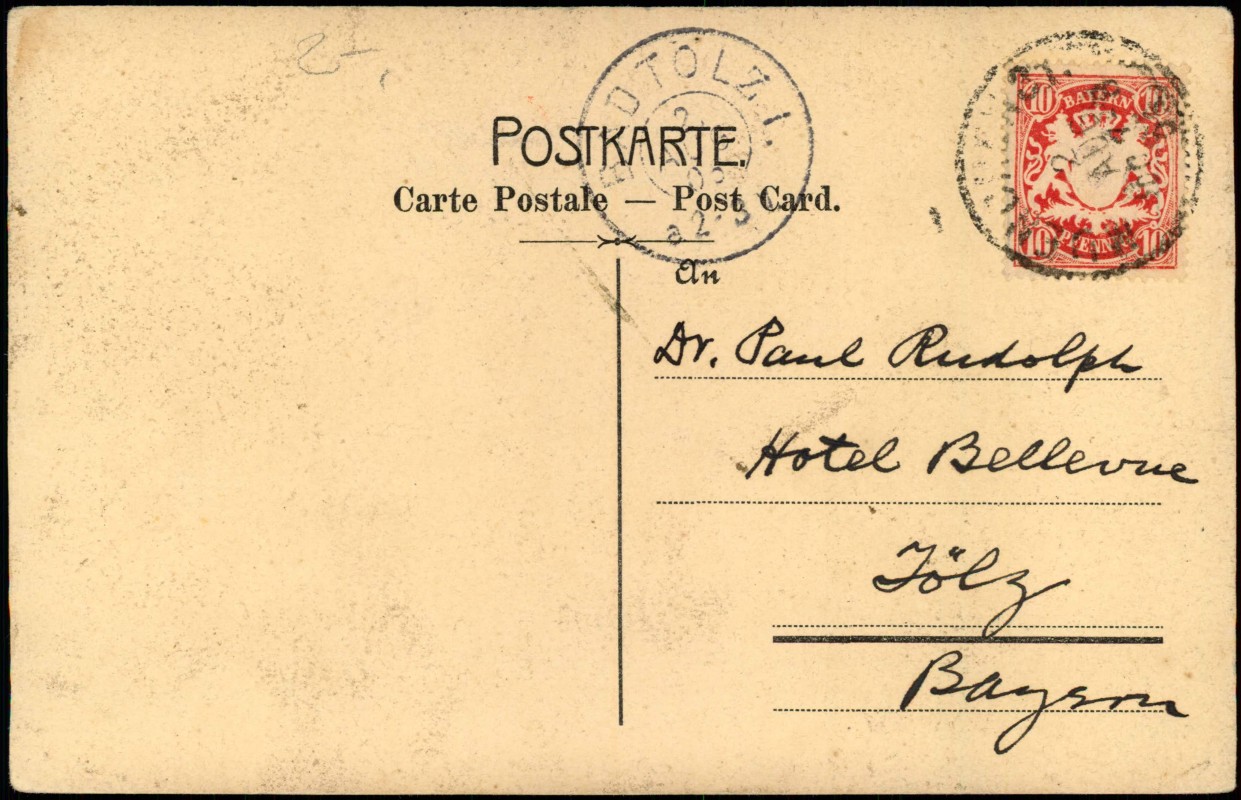 POSTKARTE.
Carte Postale — Post Card.
An
Dr. Paul Rudolph
Hotel Bellevue
Tölz
Bayern
BAYERN
10 10
10 PFENNIG 10
TÖLZ I.
a 2-3